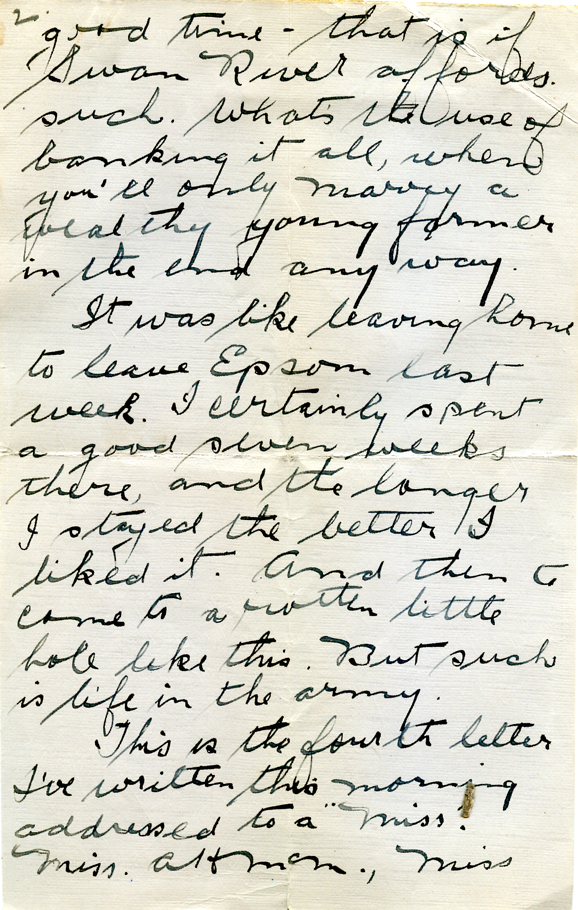 2
good time - that is if
Swan River affords.
such. Whats the use of
banking it all, when
you'll only marry a
wealthy young farmer
in the end any way.
It was like leaving home
to leave Epsom last
week. I certainly spent
a good seven weeks
there, and the longer
I stayed the better I
liked it. And then to
come to a rotten little
hole like this. But such
is life in the army.
This is the fourth letter
I've written this morning
addressed to a "Miss".
Miss. , Miss